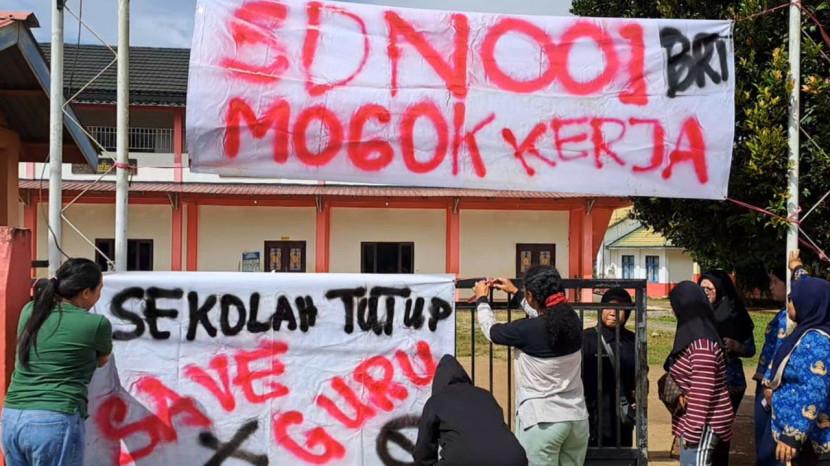 SDN001 BRT
MOGOK KERJA
SEKOLAH TUTUP
SAVE
GURU